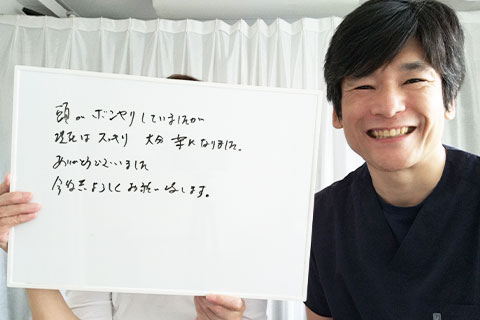 頭がボンヤリしていましたが
現在はスッキリ 大分楽になりました。
ありがとうございました
今後共よろしくお願い致します。